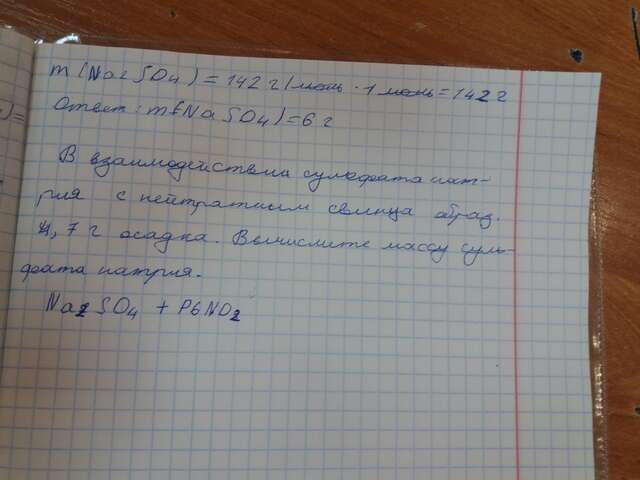 m(Na2SO4) = 142 г/моль · 1 моль = 142 г
Ответ: m(Na SO4) = 6 г
В взаимодействии сульфата нат-
рия с нейтратным свинца образ.
4,7 г осадка. Вычислите массу суль-
фата натрия.
Na2SO4 + PbNO2